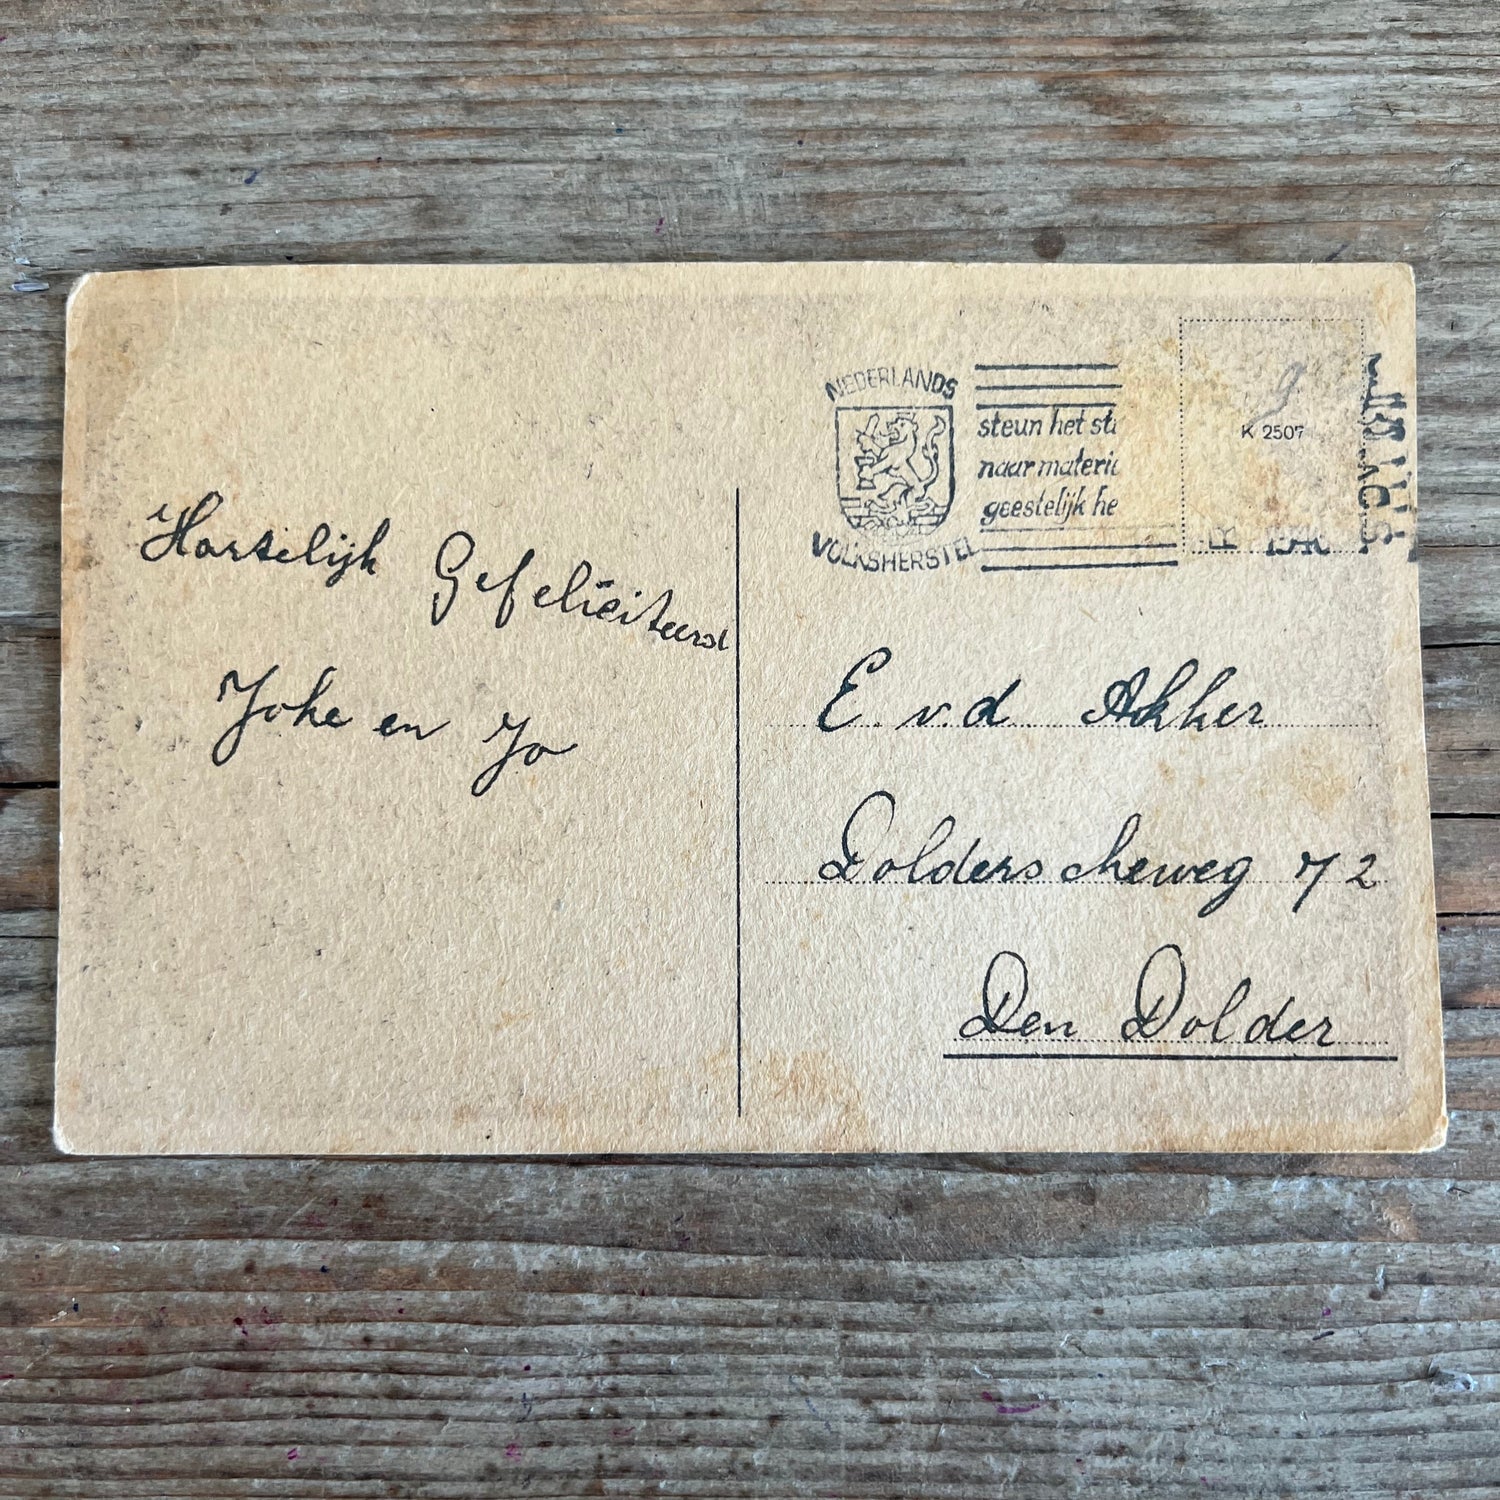 Hartelijk Gefeliciteerd
Joke en Jo
NEDERLANDS
VOLKSHERSTEL
steun het st
naar materi
geestelijk he
K 2507
E. v.d Akker
Dolderscheweg 72
Den Dolder